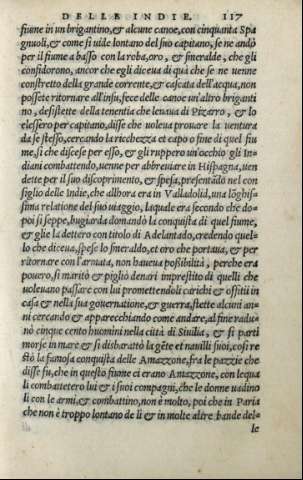 DELLE INDIE. 117
fiume in un brigantino, & alcune canoe, con cinquanta Spa
gnuoli, & come si uide lontano del suo capitano, se ne andò
per il fiume a basso con la roba, oro, & smeralde, che gli
confidorono, ancor che egli diceua di quà che se ne uenne
constretto della grande corrente, & cascata dell'acqua, non
possete ritornare all'insu, fece delle canoe un'altro briganti
no, desistette della tenentia che leuaua di Pizarro, & lo
elessero per capitano, disse che uoleua prouare la uentura
da se stesso, cercando la ricchezza et capo o fine di quel fiu
me, si che discese per esso, & gli ruppero un'occhio gli In
diani combattendo, uenne per abbreuiare in Hispagna, uen
dette per il suo discoprimento, & spesa, presentādo nel con
siglio delle Indie, che alhora era in Valladolid, una lōghis=
sima relatione del suo uiaggio, laquale era secondo che do=
poi si seppe, bugiarda domandò la conquista di quel fiume,
& glie la dettero con titolo di Adelantado, credendo quel=
lo che diceua, spese lo smeraldo, et oro che portaua, & per
ritornare con l'armata, non haueua possibilità, perche era
pouero, si maritò & pigliò denari imprestito di quelli che
uoleuano passare con lui promettendoli carichi & offitii in
casa & nella sua gouernatione, & guerra, stette alcuni an=
ni cercando & apparecchiando come andare, al fine radu=
nò cinque cento huomini nella città di Siuilia, & si partì
morse in mare & si disbarattò la gēte et nauilli suoi, cosi re
stò la famosa conquista delle Amazzone, fra le pazzie che
disse fu, che in questo fiume ci erano Amazzone, con lequa
li combattetero lui & i suoi compagni, che le donne uadino
li con le armi, & combattino, non è molto, poi che in Paria
che non è troppo lontano de li & in molte altre bande del=
le